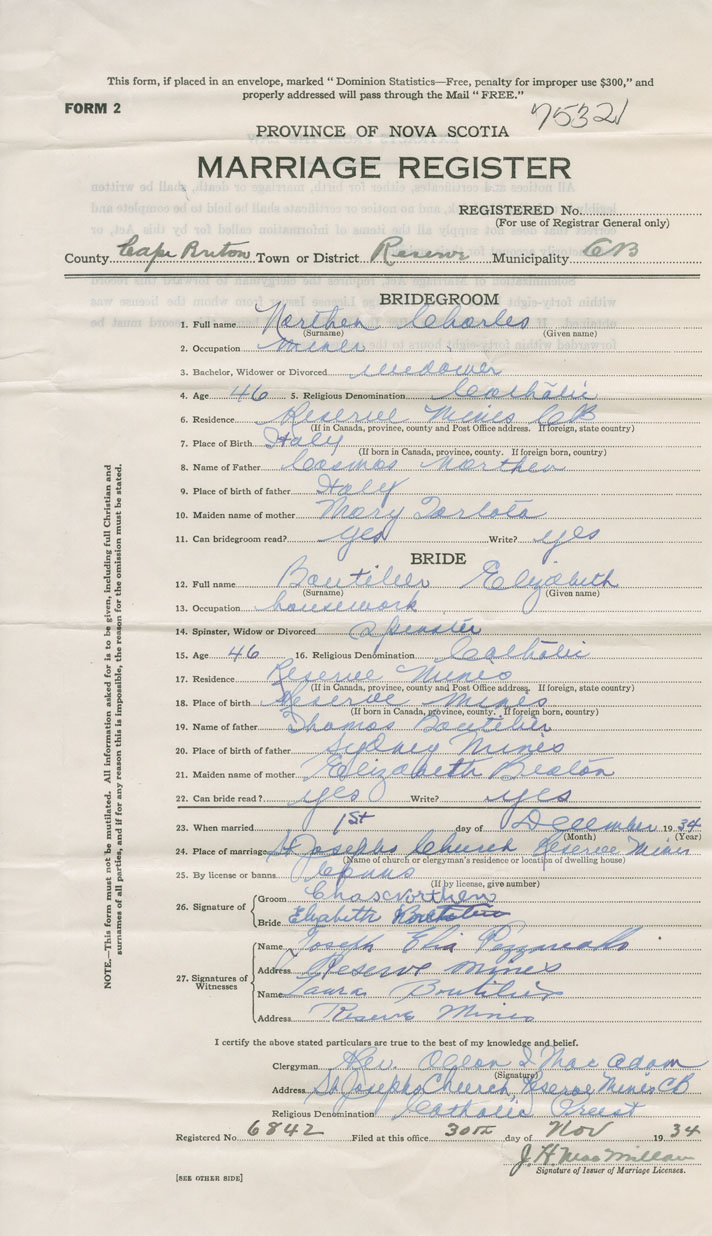 This form, if placed in an envelope, marked "Dominion Statistics—Free, penalty for improper use $300," and
properly addressed will pass through the Mail "FREE."
FORM 2
75321
PROVINCE OF NOVA SCOTIA
MARRIAGE REGISTER
REGISTERED No.
(For use of Registrar General only)
County Cape Breton Town or District Reserve Municipality CB
BRIDEGROOM
1. Full name Northen Charles
(Surname) (Given name)
2. Occupation miner
3. Bachelor, Widower or Divorced widower
4. Age 46 5. Religious Denomination Catholic
6. Residence Reserve Mines CB
(If in Canada, province, county and Post Office address. If foreign, state country)
7. Place of Birth Italy
(If born in Canada, province, county. If foreign born, country)
8. Name of Father Cosmos Northen
9. Place of birth of father Italy
10. Maiden name of mother Mary Tarlota
11. Can bridegroom read? yes Write? yes
BRIDE
12. Full name Boutilier Elizabeth
(Surname) (Given name)
13. Occupation housework
14. Spinster, Widow or Divorced Spinster
15. Age 46 16. Religious Denomination Catholic
17. Residence Reserve Mines
(If in Canada, province, county and Post Office address. If foreign, state country)
18. Place of birth Reserve Mines
(If born in Canada, province, county. If foreign born, country)
19. Name of father Thomas Boutilier
20. Place of birth of father Sydney Mines
21. Maiden name of mother Elizabeth Beaton
22. Can bride read? yes Write? yes
23. When married 1st day of December 1934
(Month) (Year)
24. Place of marriage St Josephs Church Reserve Mines
(Name of church or clergyman's residence or location of dwelling house)
25. By license or banns Banns
(If by license, give number)
26. Signature of Groom Chas Northen
Bride Elizabeth Boutilier
27. Signatures of Witnesses
Name Joseph Elia
Address Reserve Mines
Name Laura Boutilier
Address Reserve Mines
I certify the above stated particulars are true to the best of my knowledge and belief.
Clergyman Rev. MacAdam
(Signature)
Address St Josephs Church, Reserve Mines CB
Religious Denomination Catholic Priest
Registered No. 6842 Filed at this office 30th day of Nov 1934
J. H. MacMillan
Signature of Issuer of Marriage Licenses.
[SEE OTHER SIDE]
NOTE.—This form must not be mutilated. All information asked for is to be given, including full Christian and
surnames of all parties, and if for any reason this is impossible, the reason for the omission must be stated.